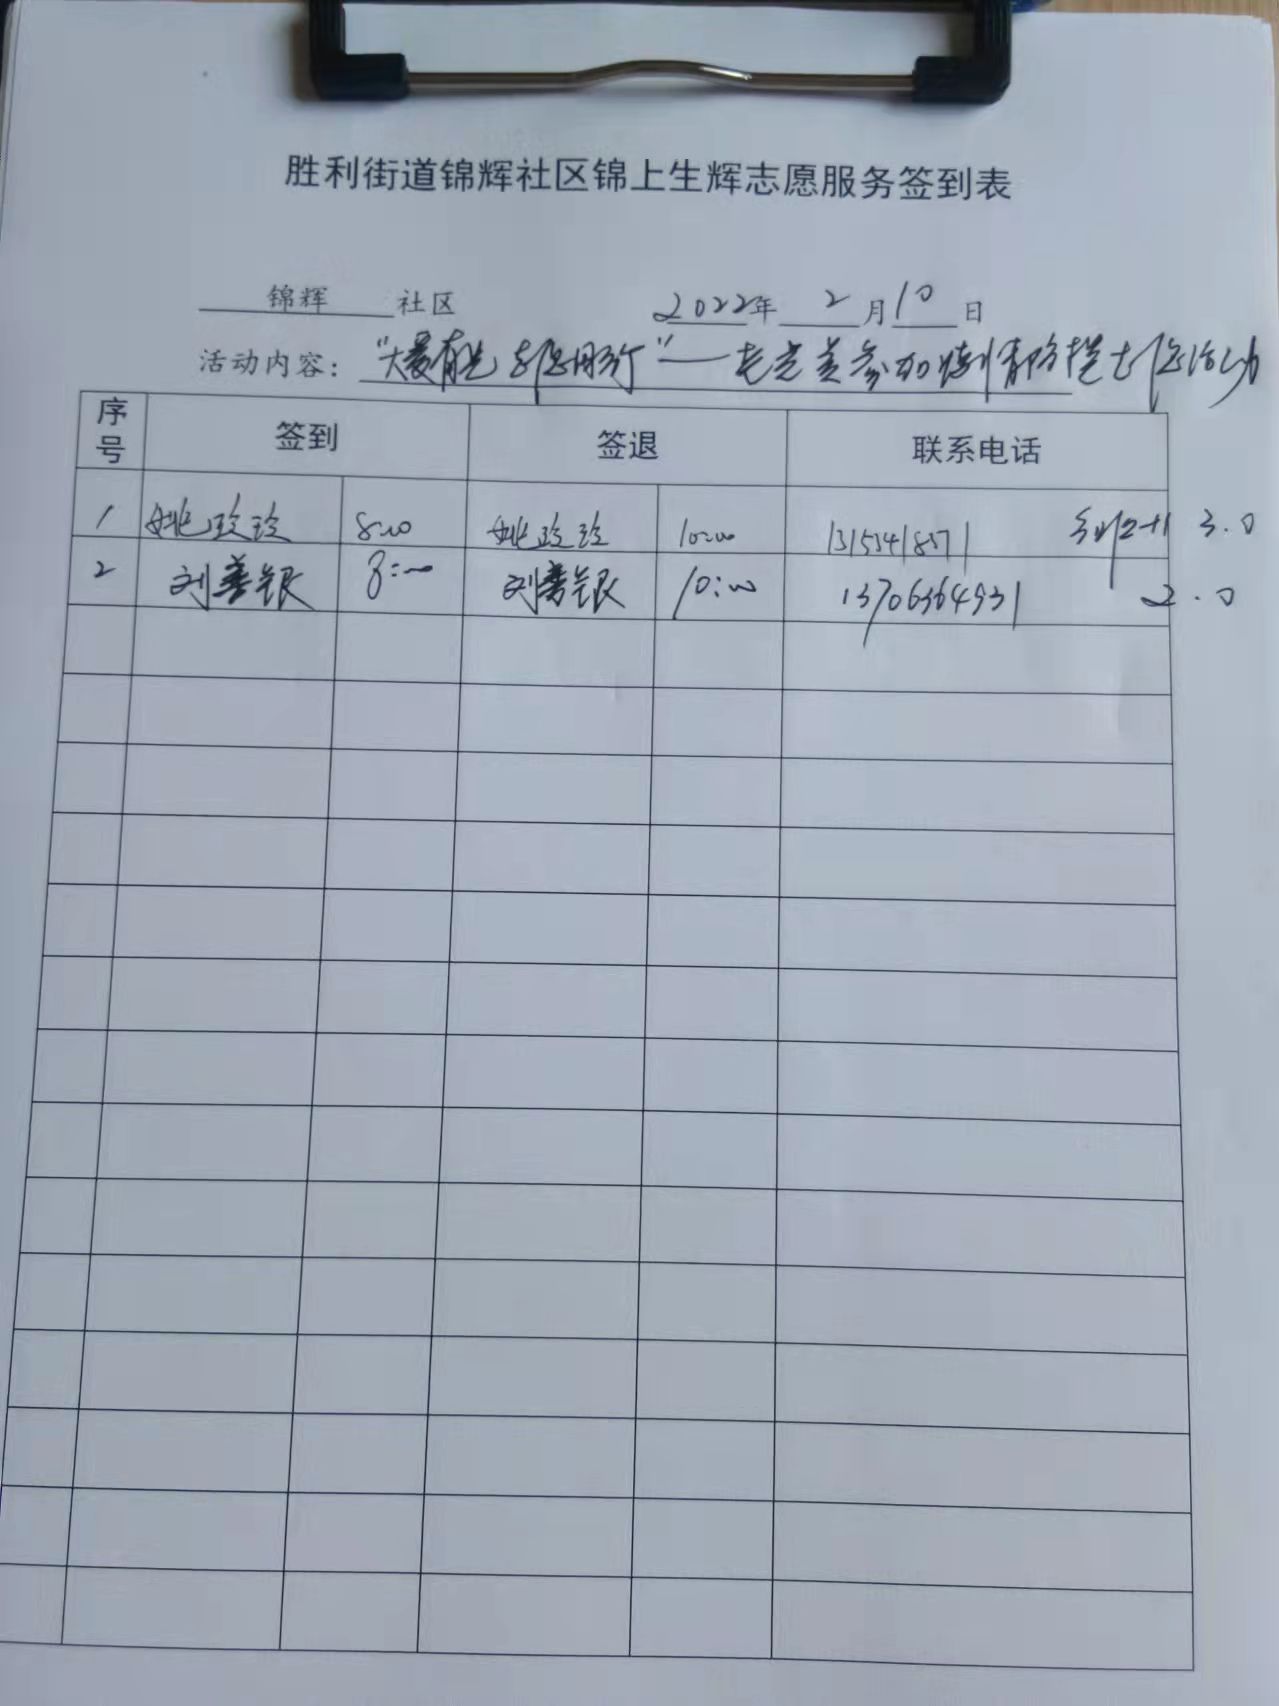 胜利街道锦辉社区锦上生辉志愿服务签到表
锦辉 社区 2022年 2 月 10 日
活动内容: "大爱有光 志愿同行"—— 参加 活动
序号 签到 签退 联系电话
1 姚玲玲 8:00 姚玲玲 10:00 13153418571 2+1 3.0
2 刘善银 8:00 刘善银 10:00 13706364931 2.0